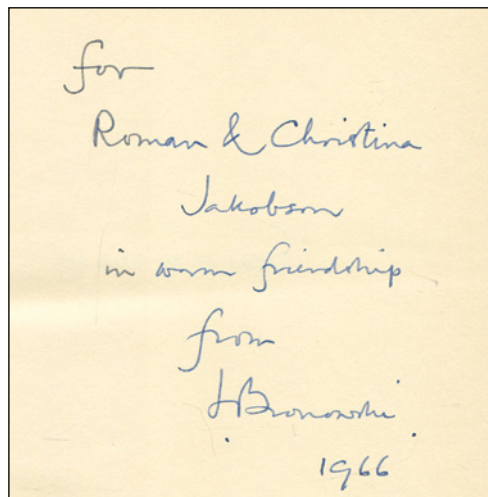 for
Roman & Christina
Jakobson
in warm friendship
from
J Bronowski.
1966